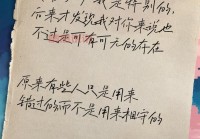 我是特别的,
后来才发现我对你来说也
不过是可有可无的存在
原来有些人只是用来
错过的而不是用来相守的